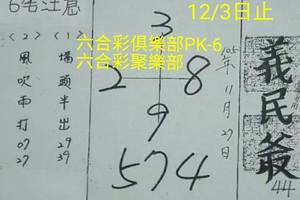 12/3日止
六合彩俱樂部PK-6
六合彩聚樂部
3
2 8
9
574
105年11月27日
義民爺
44
(1)
墻頭半出
29
39
(2)
風吹雨打
07
27